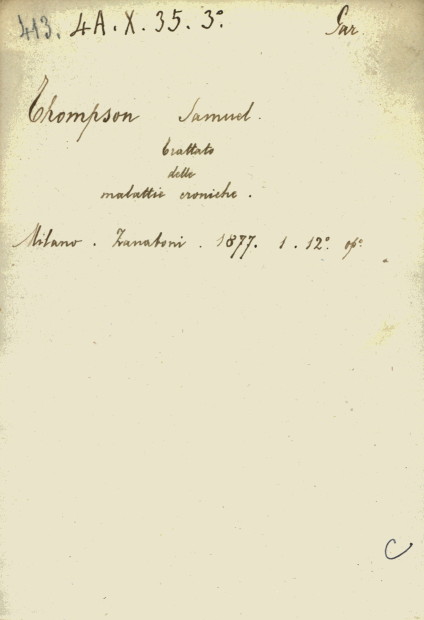 413. 4A. X. 35. 3° Gar
Thompson Samuel.
trattato
delle
malattie croniche.
Milano. Zanaboni. 1877. 1. 12° op°
C